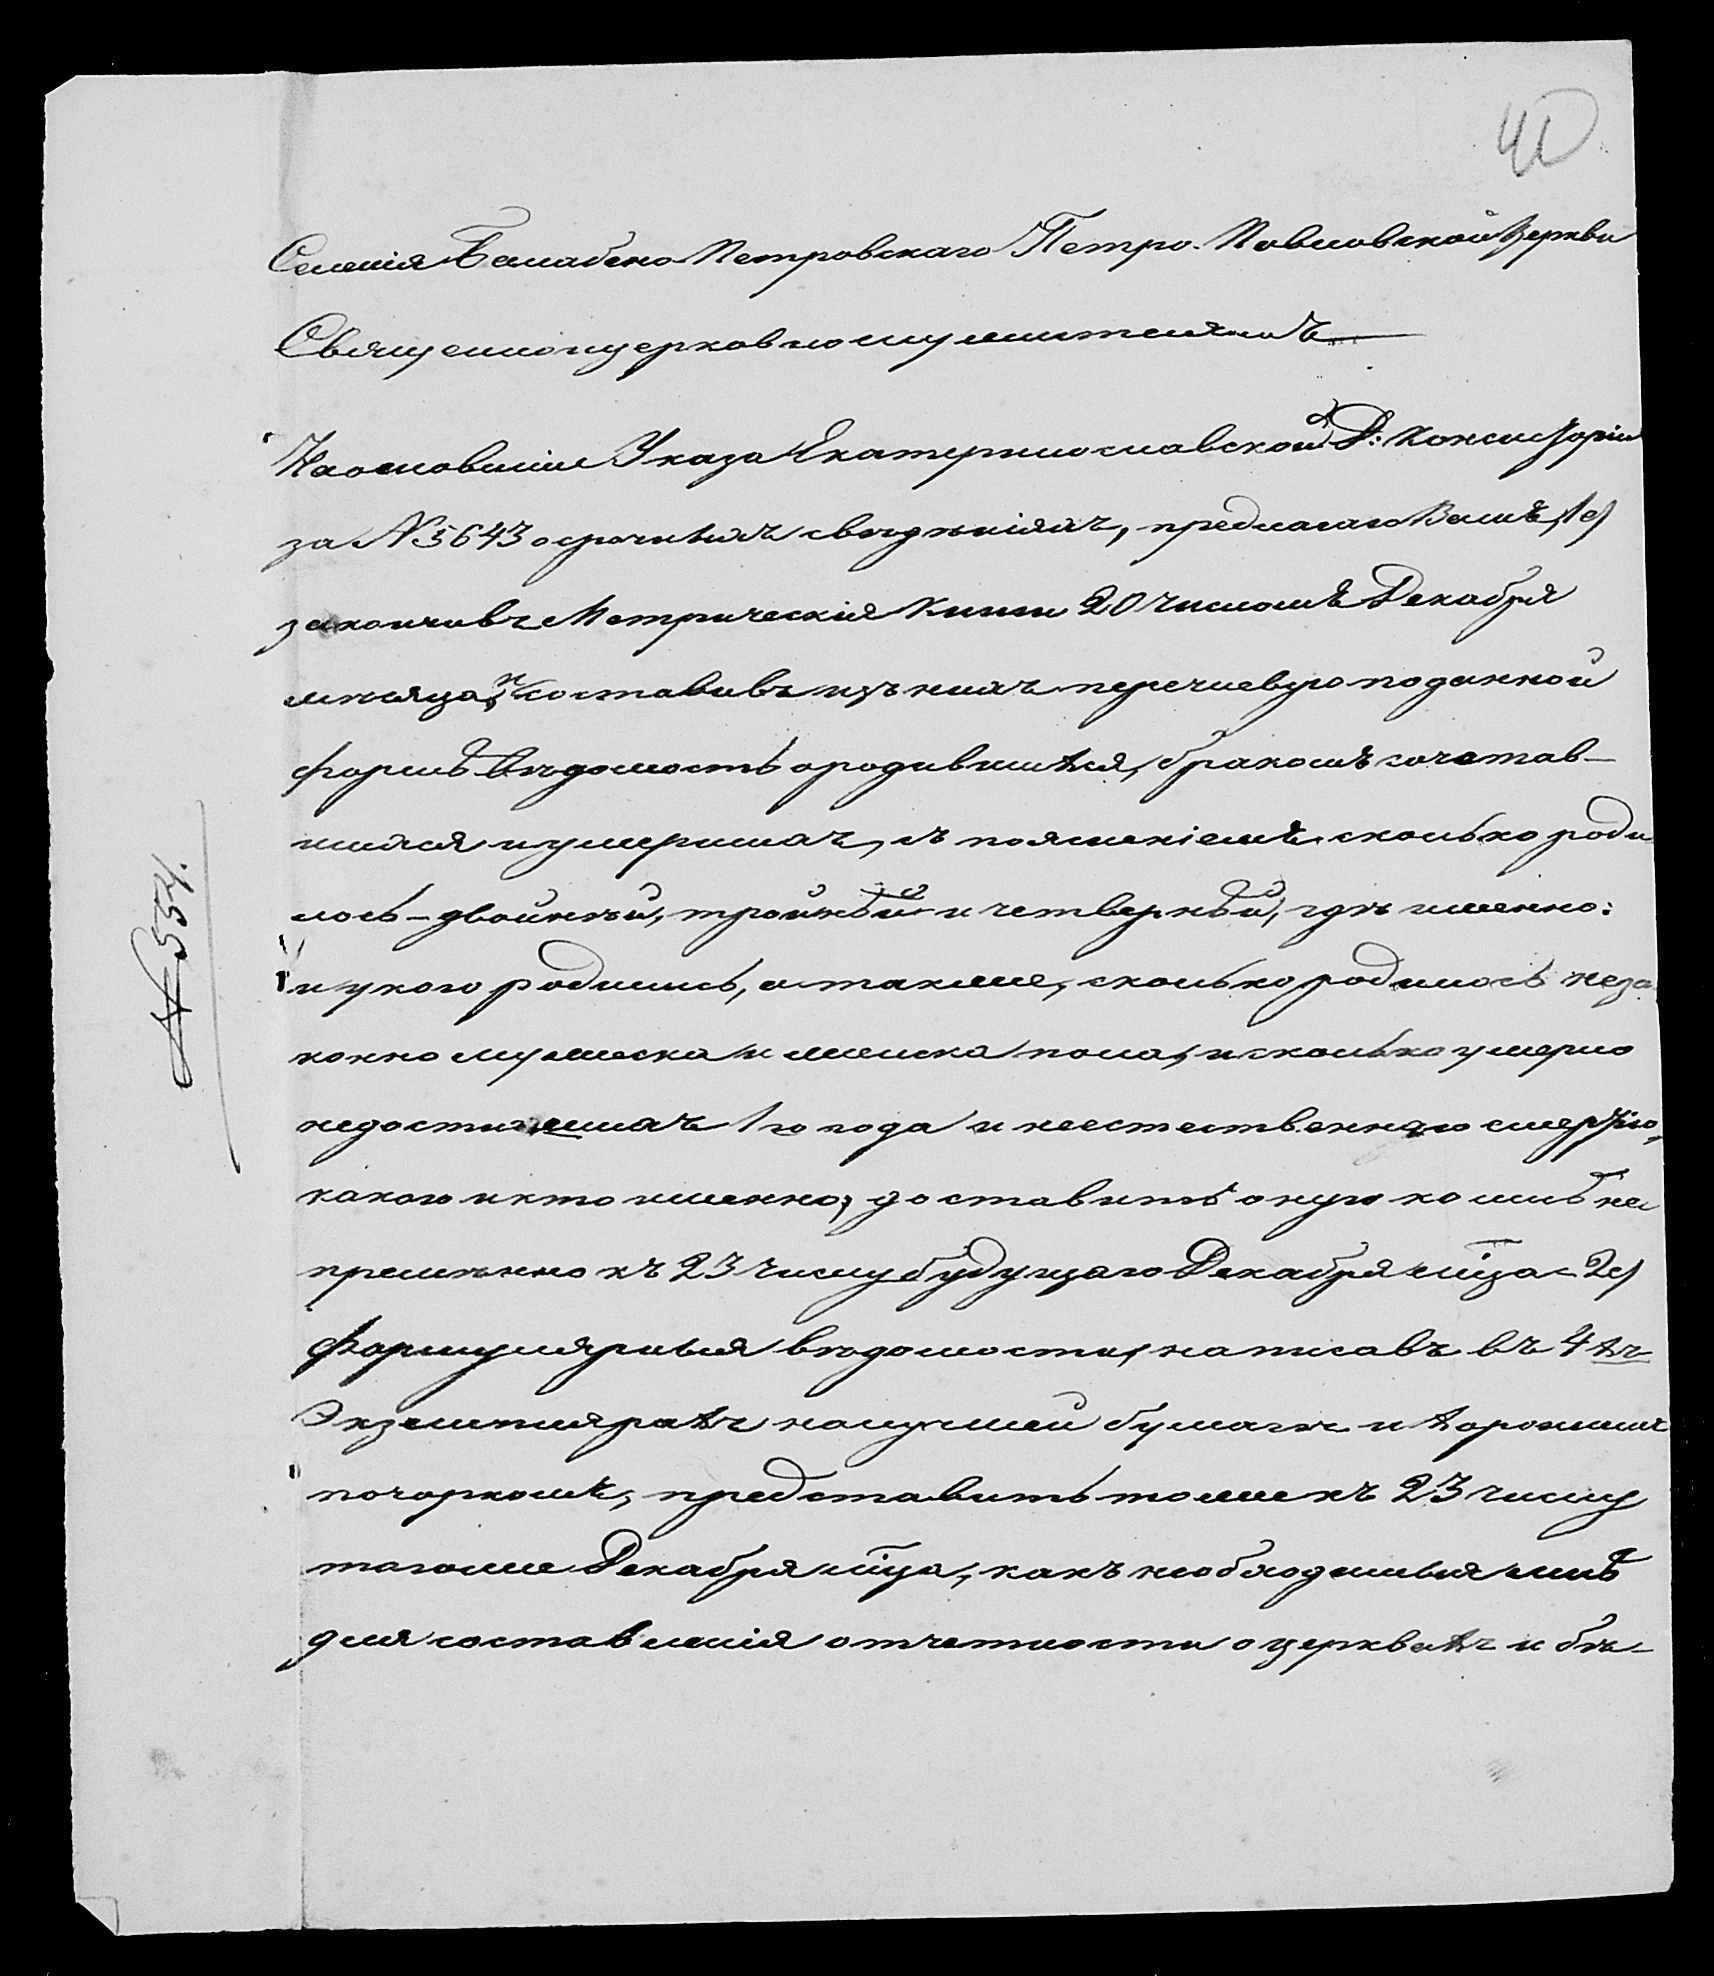 40
Селенія Балабено Петровскаго Петро-Павловской Церкви
Священноцерковнослужителямъ
На основаніи Указа Екатеринославской Д: Консисторіи
за № 5643 о срочныхъ свѣдѣніяхъ, предлагаю Вамъ, 1е)
закончивъ Метрическія Книги 20 числомъ Декабря
мѣсяца, и составивъ изъ нихъ перечневую по данной
формѣ вѣдомость о родившихся, бракомъ сочетав-
шихся и умершихъ, съ поясненіемъ сколько роди
лось – двойней, тройней и четверней, гдѣ именно:
и у кого родились, а также, сколько родилось неза
конно мужеска и женска пола, и сколько умерло
недостигшихъ 1го года и неестественною смертію,
какою и кто именно, доставить оную ко мнѣ не
премѣнно къ 23 числу будущаго Декабря мца 2е)
Формулярныя вѣдомости, написавъ въ 4хъ
Экземплярахъ на лучшей бумагѣ и хорошимъ
почеркомъ, представить тоже къ 23 числу
того же Декабря мца, какъ необходимыя мнѣ
для составленія отчетности о церквахъ и бѣ-
№ 554.